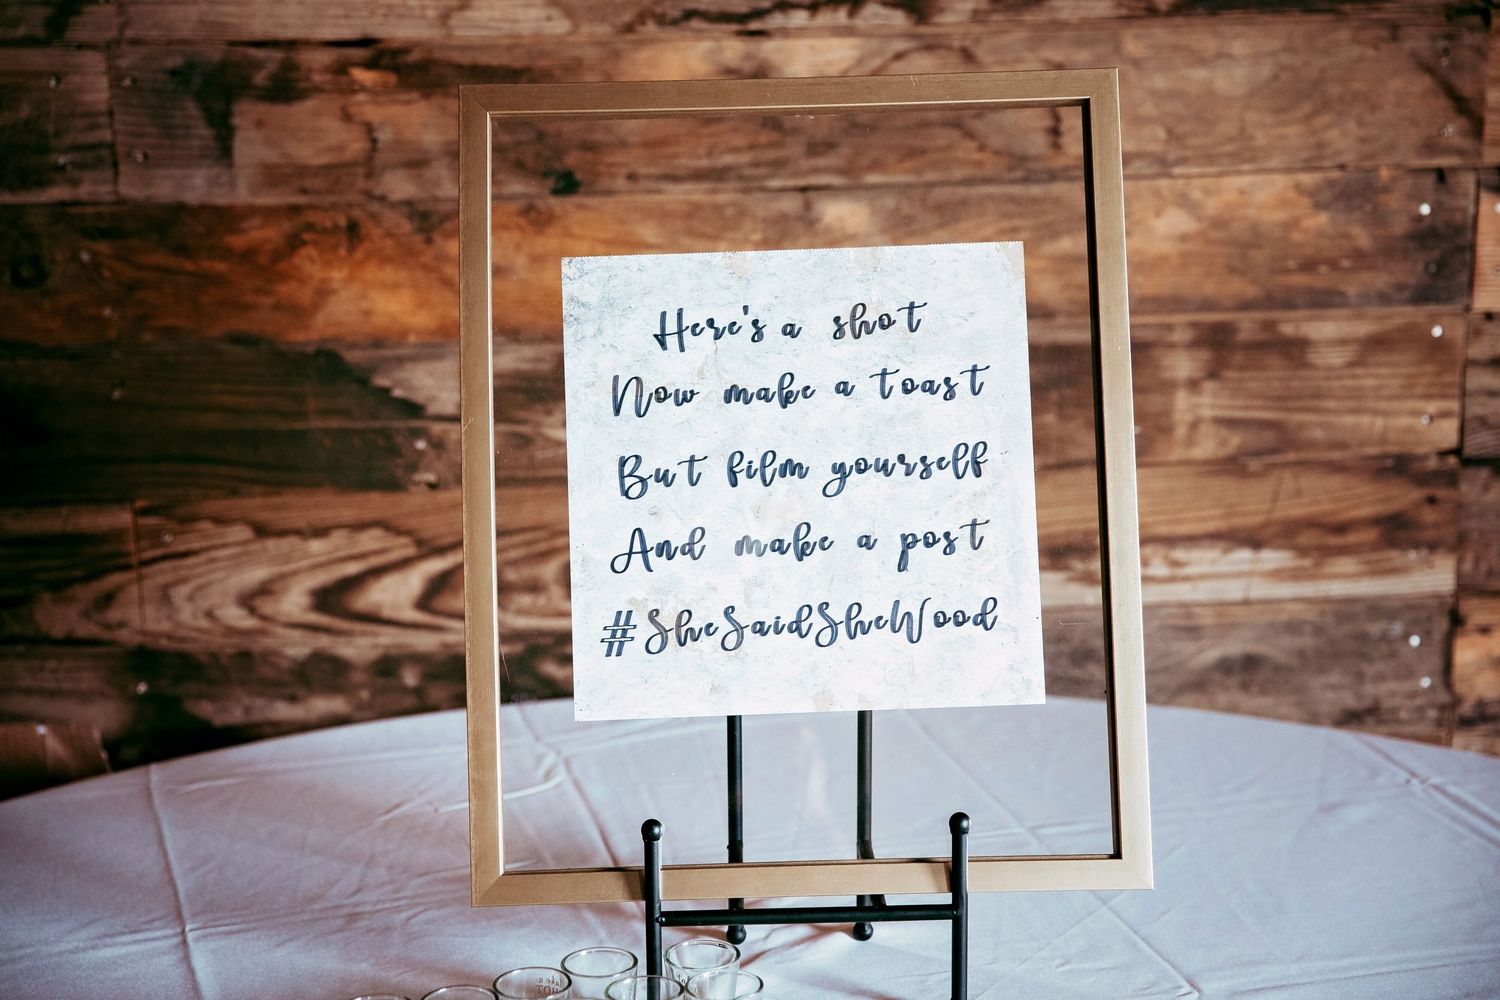 Here's a shot
Now make a toast
But film yourself
And make a post
#SheSaidSheWood